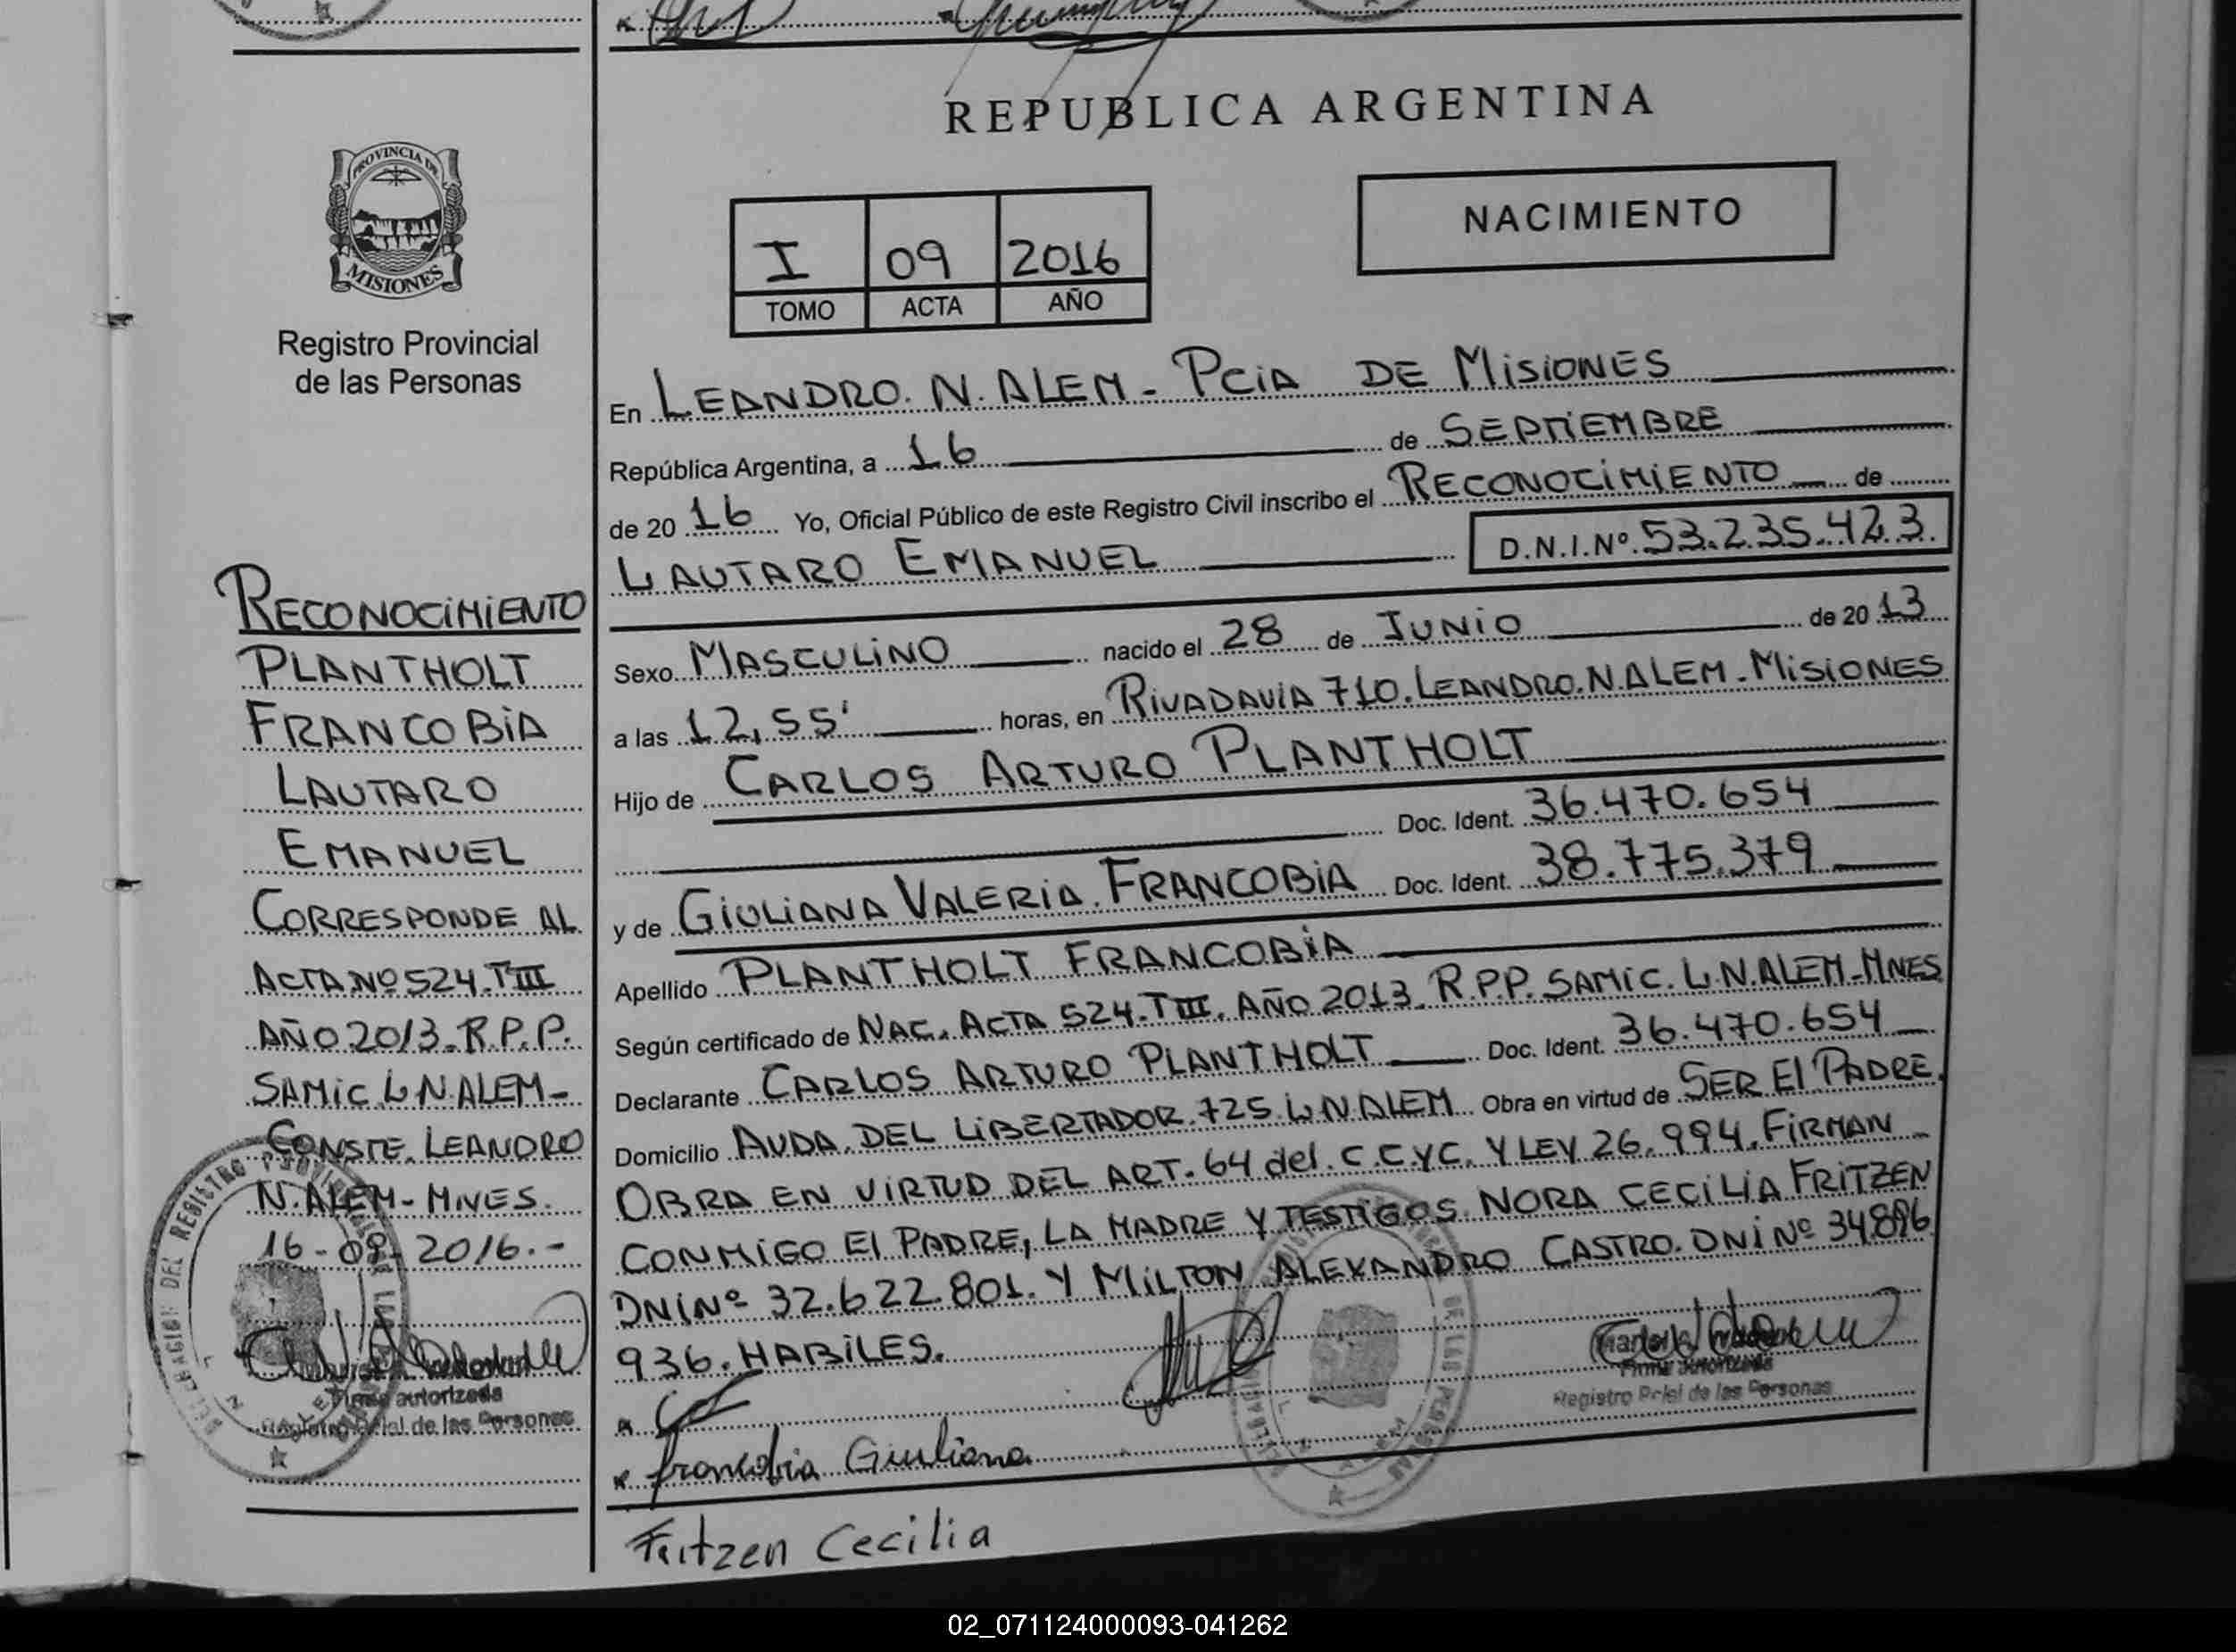 REPUBLICA ARGENTINA
PROVINCIA DE
MISIONES
Registro Provincial
de las Personas
NACIMIENTO
I 09 2016
TOMO ACTA AÑO
En LEANDRO. N. ALEM - PCIA DE MISIONES
República Argentina, a 16 de SEPTIEMBRE
de 20 16 Yo, Oficial Público de este Registro Civil inscribo el RECONOCIMIENTO de
LAUTARO EMANUEL D.N.I.Nº 53.235.423.
Sexo MASCULINO nacido el 28 de JUNIO de 20 13
a las 12,55' horas, en RIVADAVIA 710. LEANDRO.N.ALEM-MISIONES
Hijo de CARLOS ARTURO PLANTHOLT
Doc. Ident. 36.470.654
y de GIULIANA VALERIA. FRANCOBIA Doc. Ident. 38.775.379
Apellido PLANTHOLT FRANCOBIA
Según certificado de NAC. ACTA 524.TIII. AÑO 2013. R.P.P. SAMIC. L.N.ALEM-MNES
Declarante CARLOS ARTURO PLANTHOLT Doc. Ident. 36.470.654
Domicilio AVDA. DEL LIBERTADOR. 725 L.N ALEM Obra en virtud de SER El PADRE.
OBRA EN VIRTUD DEL ART. 64 del. C.C.YC. Y LEY 26.994. FIRMAN
CONMIGO El PADRE, LA MADRE Y TESTIGOS. NORA CECILIA FRITZEN
DNI Nº 32.622.801. Y MILTON ALEXANDRO CASTRO. DNI Nº 34.896
936. HABILES.
Firma autorizada
Registro Pcial de las Personas
Francobia Giuliana
Fritzen Cecilia
RECONOCIMIENTO
PLANTHOLT
FRANCOBIA
LAUTARO
EMANUEL
CORRESPONDE AL
ACTA Nº 524.TIII
AÑO 2013.R.P.P.
SAMIC L.N.ALEM-
CONSTE. LEANDRO
N. ALEM - MNES.
16-09-2016.-
Firma autorizada
Registro Pcial de las Personas
02_071124000093-041262